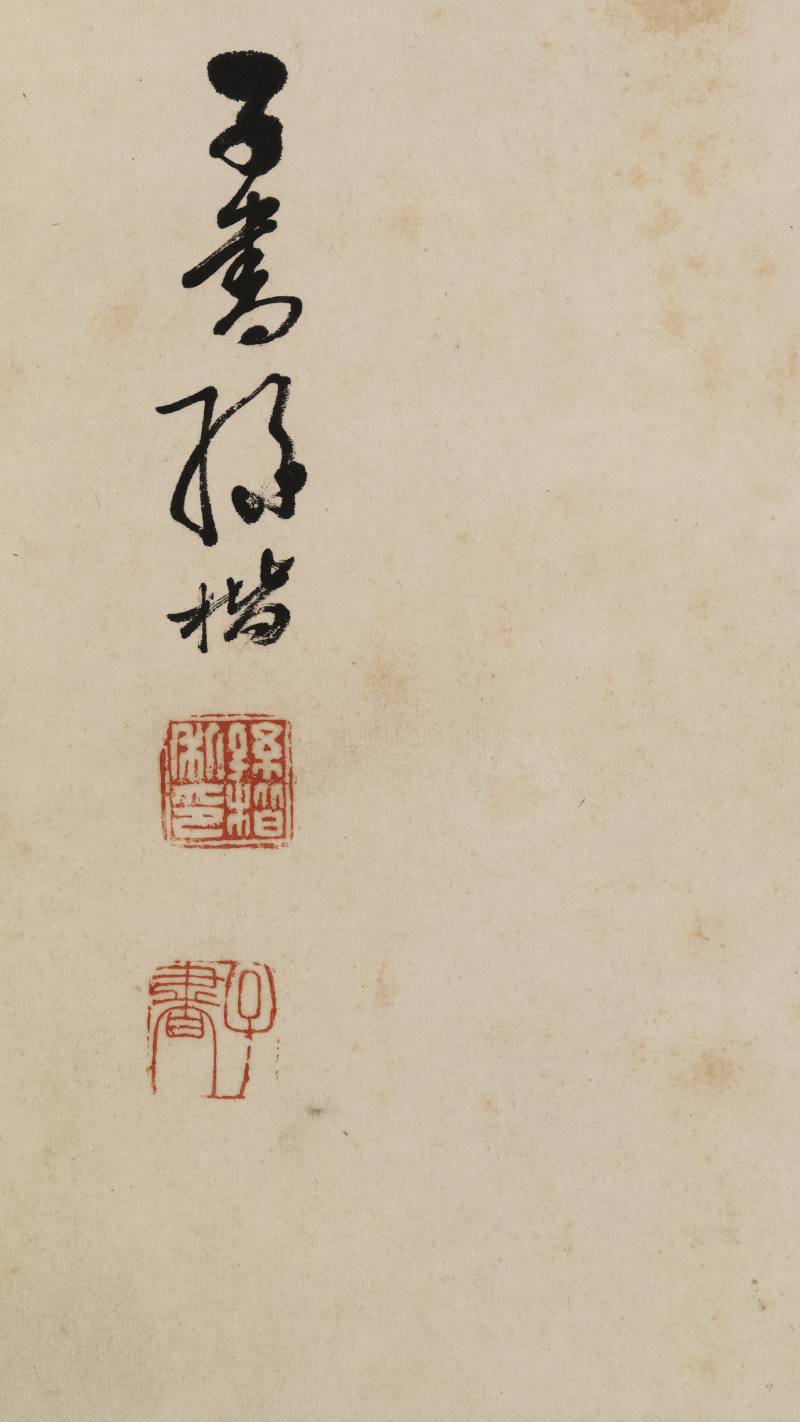 子書孫楷
孫楷私印
子書